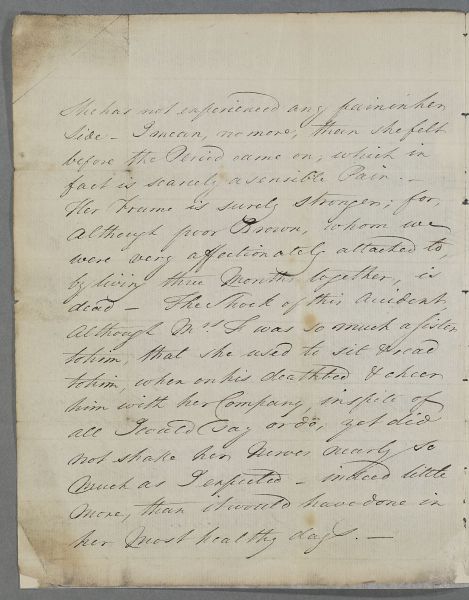 She has not experienced any pain in her
Side – I mean, no more, than she felt
before the Period came on, which in
fact is scarcely a sensible Pain. –
Her Frame is surely stronger; for,
although poor Brown, whom we
were very affectionately attached to,
by living three Months together, is
dead – The Shock of this Accident,
Although Mrs S was so much a Sister
to him, that she used to sit & read
to him, when on his deathbed & cheer
him with her Company, in spite of
all I could say or do, yet did
not shake her Nerves nearly so
much as I expected – indeed little
more, than it would have done in
her most healthy days. –